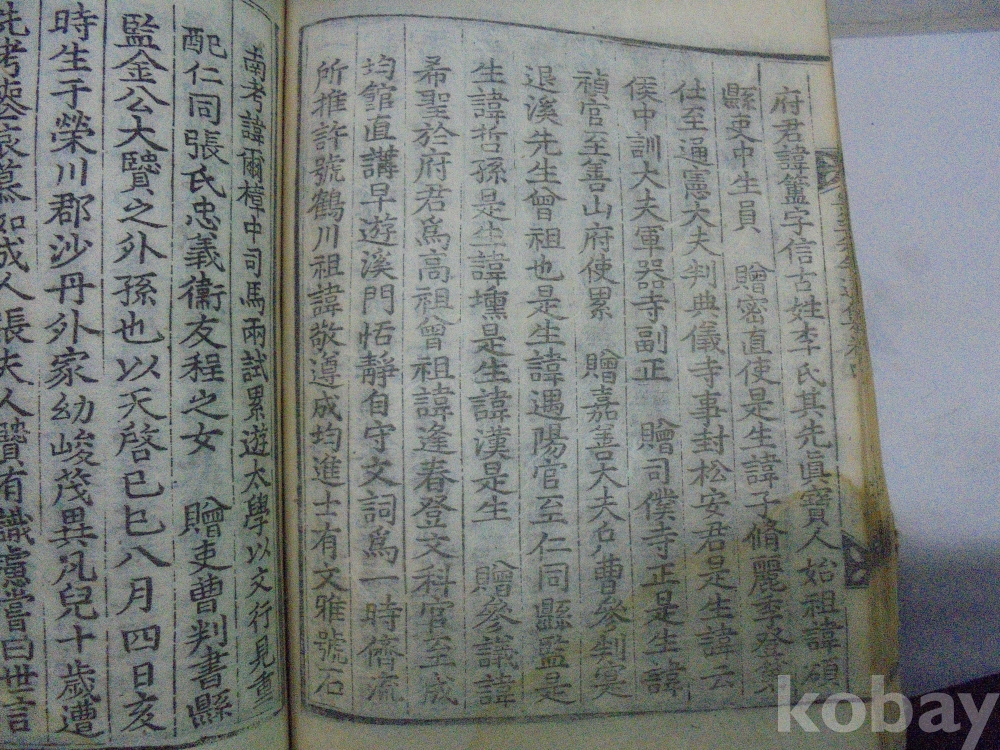 府君諱簠字信古姓李氏其先眞寶人始祖諱碩
縣吏中生員 贈密直使是生諱子脩麗季登第
仕至通憲大夫判典儀寺事封松安君是生諱云
侯中訓大夫軍器寺副正 贈司僕寺正是生諱
禎官至善山府使累 贈嘉善大夫戶曹參判寔
退溪先生曾祖也是生諱遇陽官至仁同縣監是
生諱哲孫是生諱壎是生諱漢是生 贈參議諱
希聖於府君爲高祖曾祖諱逢春登文科官至成
均館直講早遊溪門恬靜自守文詞爲一時儕流
所推許號鶴川祖諱敬遵成均進士有文雅號石
南考諱爾樟中司馬兩試累遊太學以文行見重
配仁同張氏忠義衛友程之女 贈吏曹判書縣
監金公大賢之外孫也以天啓己巳八月四日亥
時生于榮川郡沙丹外家幼峻茂異凡兒十歲遭
先考喪哀慕如成人張夫人賢有識慮嘗曰世言
kobay